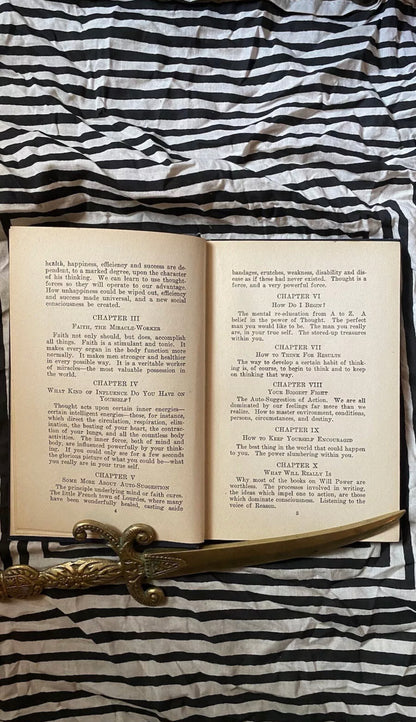 health, happiness, efficiency and success are de-
pendent, to a marked degree, upon the character
of his thinking. We can learn to use thought-
forces so they will operate to our advantage.
How unhappiness could be wiped out, efficiency
and success made universal, and a new social
consciousness be created.
CHAPTER III
FAITH, THE MIRACLE-WORKER
Faith not only should, but does, accomplish
all things. Faith is a stimulant and tonic. It
makes every organ in the body function more
normally. It makes men stronger and healthier
in every possible way. It is a veritable worker
of miracles—the most valuable possession in
the world.
CHAPTER IV
WHAT KIND OF INFLUENCE DO YOU HAVE ON
YOURSELF?
Thought acts upon certain inner energies—
certain intelligent energies—those, for instance,
which direct the circulation, respiration, elim-
ination, the beating of your heart, the contrac-
tion of your lungs, and all the countless body
activities. The inner forces, both of mind and
body, are influenced powerfully by your think-
ing. If you could only see for a few seconds
the glorious picture of what you could be—what
you really are in your true self.
CHAPTER V
SOME MORE ABOUT AUTO-SUGGESTION
The principle underlying mind or faith cures.
The little French town of Lourdes, where many
have been wonderfully healed, casting aside
4
bandages, crutches, weakness, disability and dis-
ease as if these had never existed. Thought is a
force, and a very powerful force.
CHAPTER VI
HOW DO I BEGIN?
The mental re-education from A to Z. A
belief in the power of Thought. The perfect
man you would like to be. The man you really
are, in your true self. The stored-up treasures
within you.
CHAPTER VII
HOW TO THINK FOR RESULTS
The way to develop a certain habit of think-
ing is, of course, to begin to think and to keep
on thinking that way.
CHAPTER VIII
YOUR BIGGEST FIGHT
The Auto-Suggestion of Action. We are all
dominated by our feelings far more than we
realize. How to master environment, conditions,
persons, circumstances, and destiny.
CHAPTER IX
HOW TO KEEP YOURSELF ENCOURAGED
The best thing in the world that could happen
to you. The power slumbering within you.
CHAPTER X
WHAT WILL REALLY IS
Why most of the books on Will Power are
worthless. The processes involved in writing,
the ideas which impel one to action, are those
which dominate consciousness. Listening to the
voice of Reason.
5